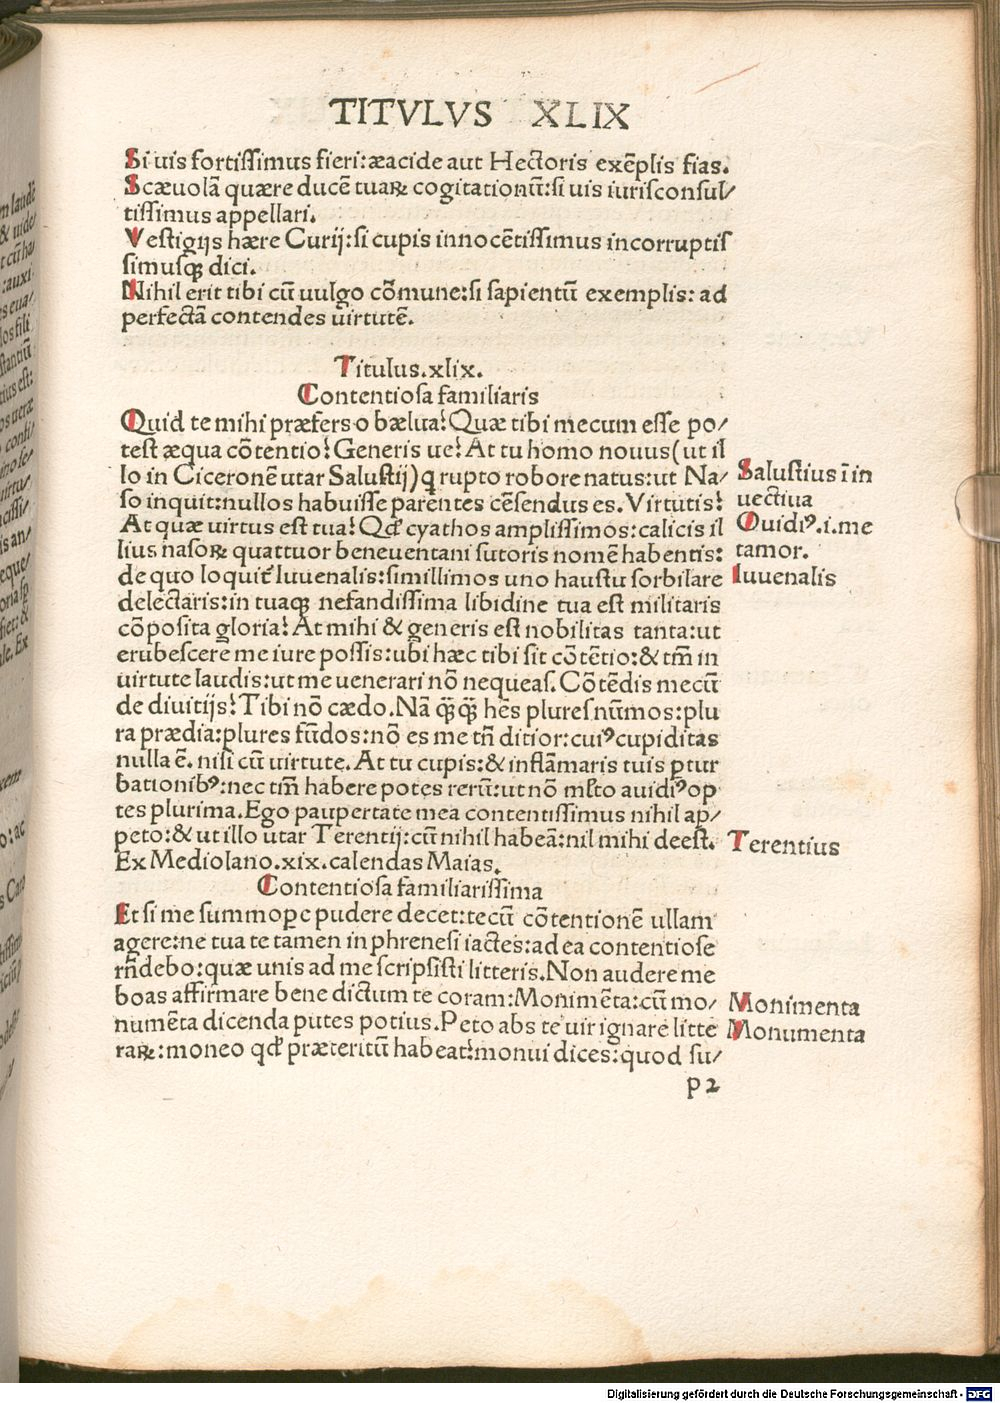 TITVLVS XLIX
Si uis fortissimus fieri: æacide aut Hectoris exēplis fias.
Scæuolā quære ducē tuaꝝ cogitationū: si uis iurisconsul/
tissimus appellari.
Vestigijs hære Curij: si cupis innocētissimus incorruptis
simusqꝫ dici.
Nihil erit tibi cū uulgo cōmune: si sapientū exemplis: ad
perfectā contendes uirtutē.
Titulus.xlix.
Contentiosa familiaris
Quid te mihi præfers o bælua? Quæ tibi mecum esse po/
test æqua cōtentio? Generis ue? At tu homo nouus (ut il
lo in Ciceronē utar Salustij) ꝗ rupto robore natus: ut Na/
so inquit: nullos habuisse parentes cēsendus es. Virtutis?
At quæ uirtus est tua? Qđ cyathos amplissimos: calicis il
lius nasoꝝ quattuor beneuentani sutoris nomē habentis:
de quo loquit̄ Iuuenalis: simillimos uno haustu sorbilare
delectaris: in tuaqꝫ nefandissima libidine tua est militaris
cōposita gloria? At mihi & generis est nobilitas tanta: ut
erubescere me iure possis: ubi hæc tibi sit cōtētio: & tm̄ in
uirtute laudis: ut me uenerari nō nequeas. Cōtēdis mecū
de diuitijs? Tibi nō cædo. Nā qꝫ̄qꝫ̄ hēs plures nūmos: plu
ra prædia: plures fūdos: nō es me tn̄ ditior: cuiꝰ cupiditas
nulla ē. nisi cū uirtute. At tu cupis: & inflāmaris tuis ꝑtur
bationibꝰ: nec tm̄ habere potes rerū: ut nō młto auidiꝰ op
tes plurima. Ego paupertate mea contentissimus nihil ap/
peto: & ut illo utar Terentij: cū nihil habeā: nil mihi deest.
Ex Mediolano.xix.calendas Maias.
Contentiosa familiarissima
Et si me summoꝑe pudere decet: tecū cōtentionē ullam
agere: ne tua te tamen in phrenesi iactes: ad ea contentiose
rn̄debo: quæ unis ad me scripsisti litteris. Non audere me
boas affirmare bene dictum te coram: Monimēta: cū mo/
numēta dicenda putes potius. Peto abs te uir ignare litte
raꝝ: moneo qđ præteritū habeat? monui dices: quod su/
p2
Salustius ī in
uectiua
Ouidiꝰ.i.me
tamor.
Iuuenalis
Terentius
Monimenta
Monumenta
Digitalisierung gefördert durch die Deutsche Forschungsgemeinschaft - DFG